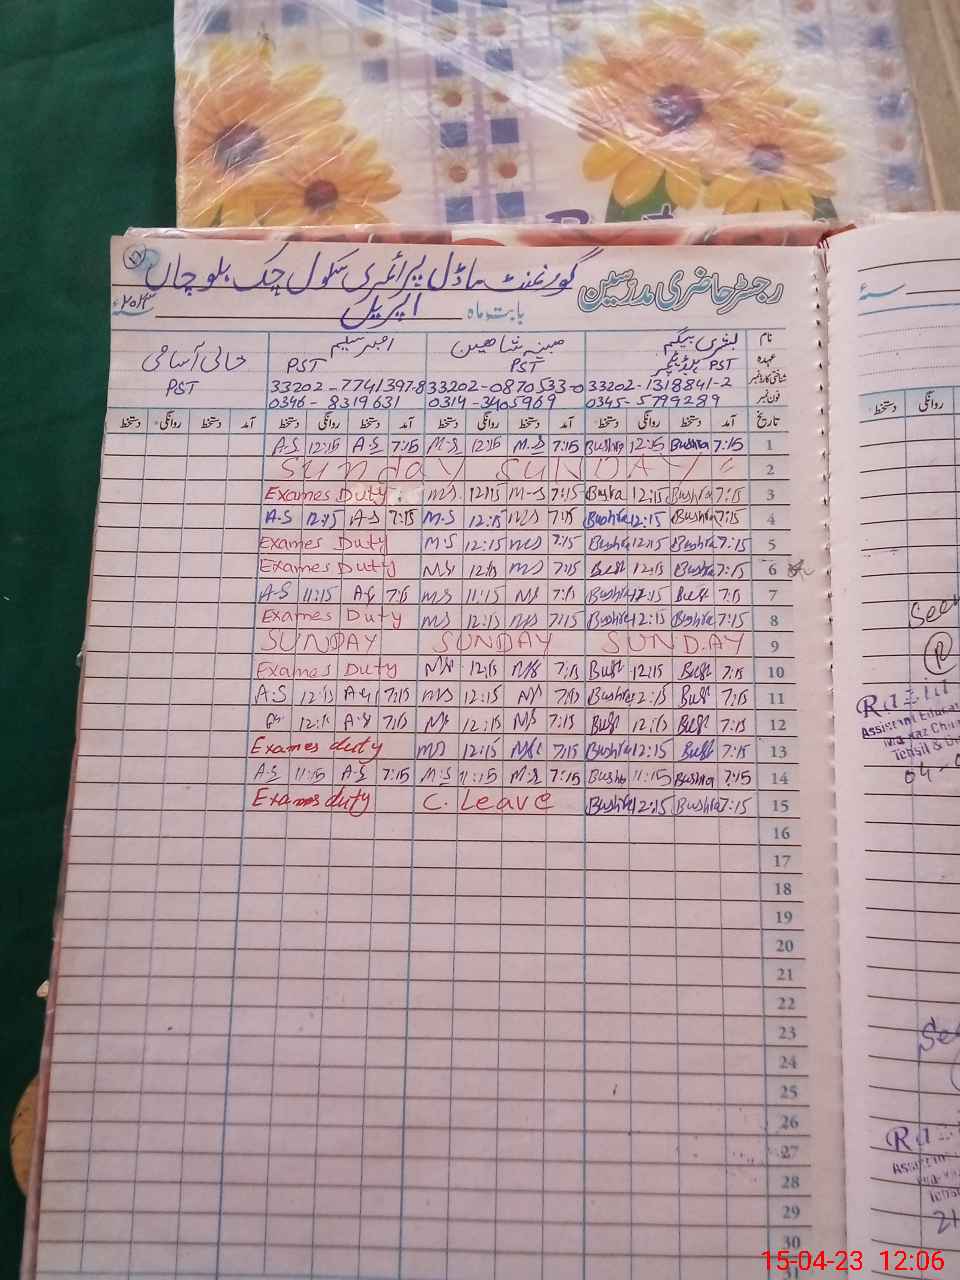 رجسٹر حاضری مدرسین گورنمنٹ ماڈل پرائمری سکول چک بلوچاں
بابت ماہ اپریل ۲۰۲۳ء
نام بشریٰ بیگم مبینہ شاھین امبر سلیم خالی آسامی
عہدہ PST ہیڈ ٹیچر PST PST PST
شناختی کارڈ نمبر 33202-1318841-2 33202-0870533-0 33202-7741397-8
فون نمبر 0345-5799289 0314-3405969 0346-8319631
تاریخ آمد دستخط روانگی دستخط آمد دستخط روانگی دستخط آمد دستخط روانگی دستخط آمد دستخط روانگی دستخط
A.S 12:15 A.S 7:15 M.S 12:15 M.S 7:15 Bushra 12:15 Bushra 7:15 1
Sunday SUNDAY 2
Exames Duty M.S. 12:15 M-S 7:15 Bushra 12:15 Bushra 7:15 3
A.S 12:15 A-S 7:15 M.S 12:15 MS 7:15 Bushra 12:15 Bushra 7:15 4
Exames Duty M.S 12:15 MS 7:15 Bushra 12:15 Bushra 7:15 5
Exames Duty MS 12:15 MS 7:15 12:15 Bushra 7:15 6
A-S 11:15 A-S 7:15 MS 11:15 MS 7:15 Bushra 12:15 7:15 7
Exames Duty MS 12:15 MS 7:15 Bushra 12:15 Bushra 7:15 8
SUNDAY SUNDAY SUNDAY 9
Exames Duty MS 12:15 MS 7:15 12:15 7:15 10
A.S 12:15 A-S 7:15 MS 12:15 MS 7:15 Bushra 12:15 7:15 11
12:15 A-S 7:15 MS 12:15 MS 7:15 12:15 7:15 12
Exames duty MS 12:15 MS 7:15 Bushra 12:15 7:15 13
A-S 11:15 A-S 7:15 M.S 11:15 M.S 7:15 Bushra 11:15 Bushra 7:15 14
Exames duty C. Leave Bushra 12:15 Bushra 7:15 15
16
17
18
19
20
21
22
23
24
25
26
27
28
29
30
31
روانگی دستخط
Seen
Assistant Educat
Markaz Chin
Tehsil & Di
04-0
See
Assistan
Tehsi
21
15-04-23 12:06